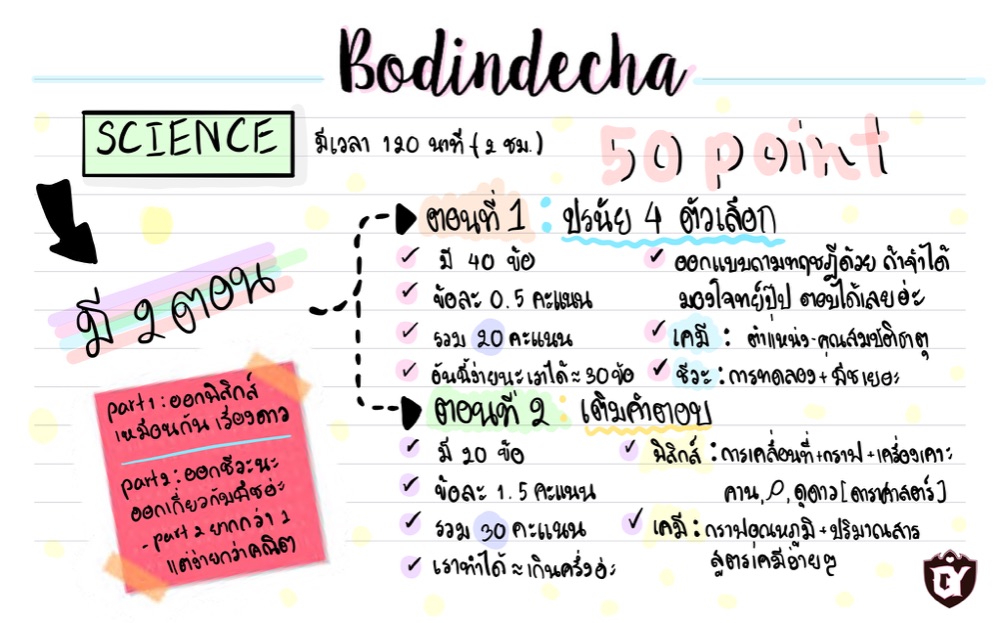 Bodindecha
SCIENCE
มีเวลา 120 นาที (2 ชม.)
50 point
มี 2 ตอน
ตอนที่ 1 : ปรนัย 4 ตัวเลือก
✓ มี 40 ข้อ
✓ ข้อละ 0.5 คะแนน
✓ รวม 20 คะแนน
✓ อันนี้ง่ายนะ เราได้ ≈ 30 ข้อ
✓ ออกแบบถามทฤษฎีด้วย ถ้าจำได้
มองโจทย์ปุ๊ป ตอบได้เลยอ่ะ
✓ เคมี : ตำแหน่ง-คุณสมบัติธาตุ
✓ ชีวะ : การทดลอง + พืชเยอะ
ตอนที่ 2 : เติมคำตอบ
✓ มี 20 ข้อ
✓ ข้อละ 1.5 คะแนน
✓ รวม 30 คะแนน
✓ เราทำได้ ≈ เกินครึ่งอ่ะ
✓ ฟิสิกส์ : การเคลื่อนที่ + กราฟ + เครื่องเคาะ
คาน, ดูดาว [ดาราศาสตร์]
✓ เคมี : กราฟอุณหภูมิ + ปริมาณสาร
สูตรเคมีง่ายๆ
part 1 : ออกฟิสิกส์
เหมือนกัน เรื่องดาว
part 2 : ออกชีวะนะ
ออกเกี่ยวกับพืชอ่ะ
- part 2 ยากกว่า 1
แต่ง่ายกว่าคณิต